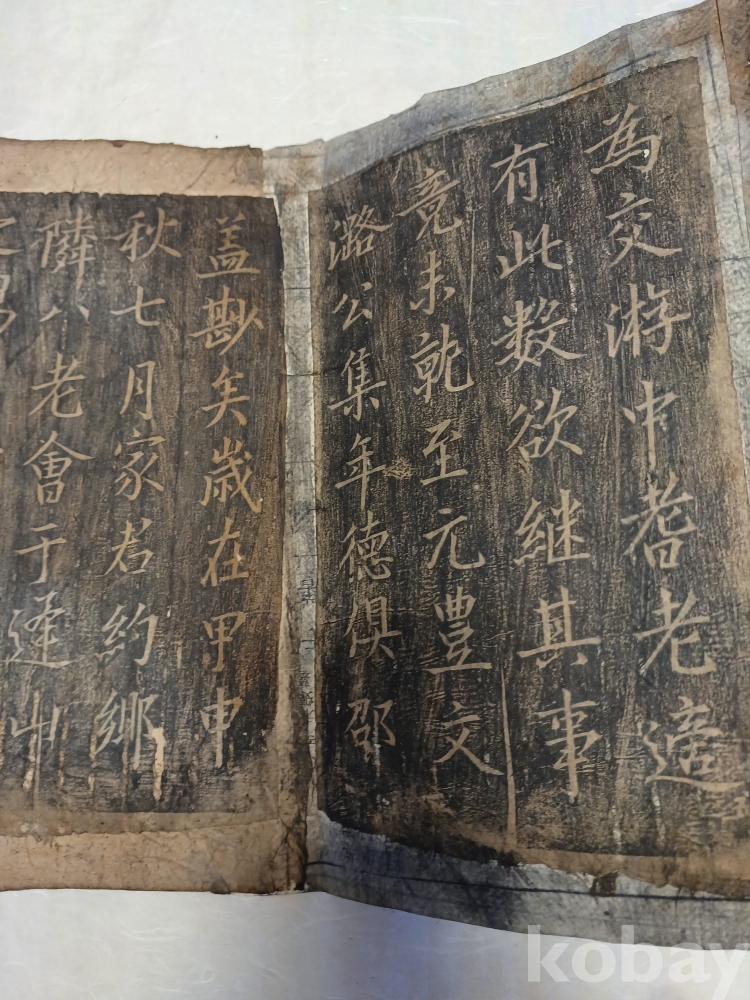 為交游中耆老適
有此數欲継其事
竟未就至元豊文
潞公集年德俱邵
盖尠矣歳在甲申
秋七月家君約鄉
隣八老會于逢
kobay